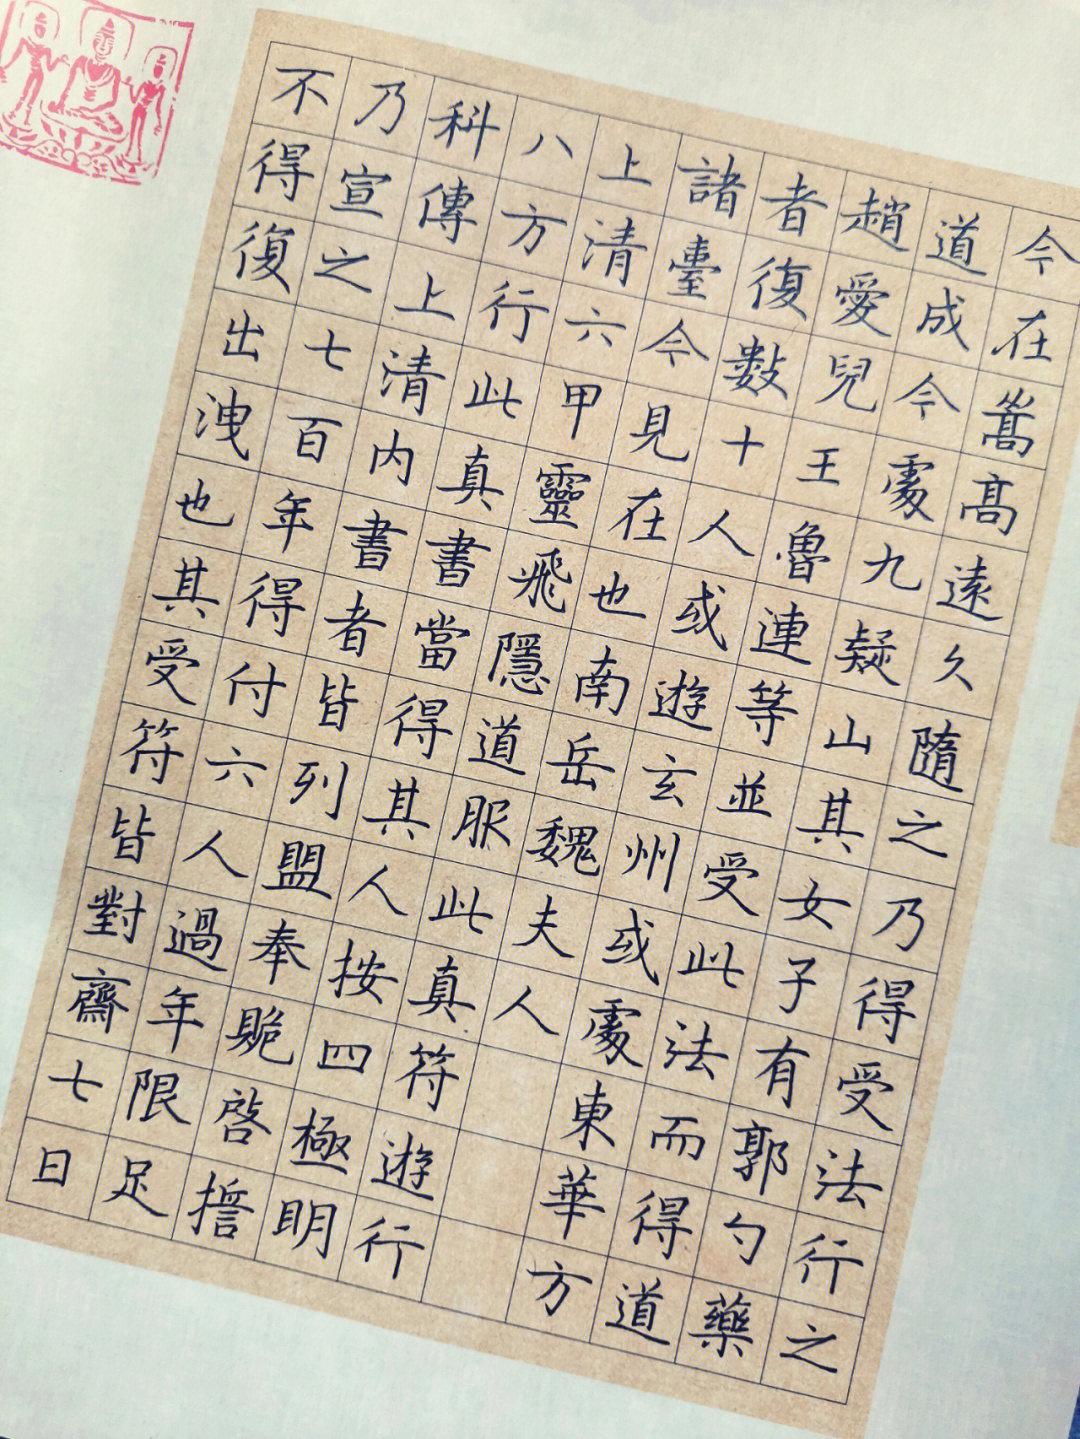 今在嵩高遠久隨之乃得受法行之
道成今處九疑山其女子有郭勺藥
趙愛兒王魯連等並受此法而得道
者復數十人或遊玄州或處東華方
諸臺今見在也南岳魏夫人
上清六甲靈飛隱道服此真符遊行
八方行此真書當得其人按四極明
科傳上清內書者皆列盟奉跪啓擔
乃宣之七百年得付六人過年限足
不得復出洩也其受符皆對齋七日